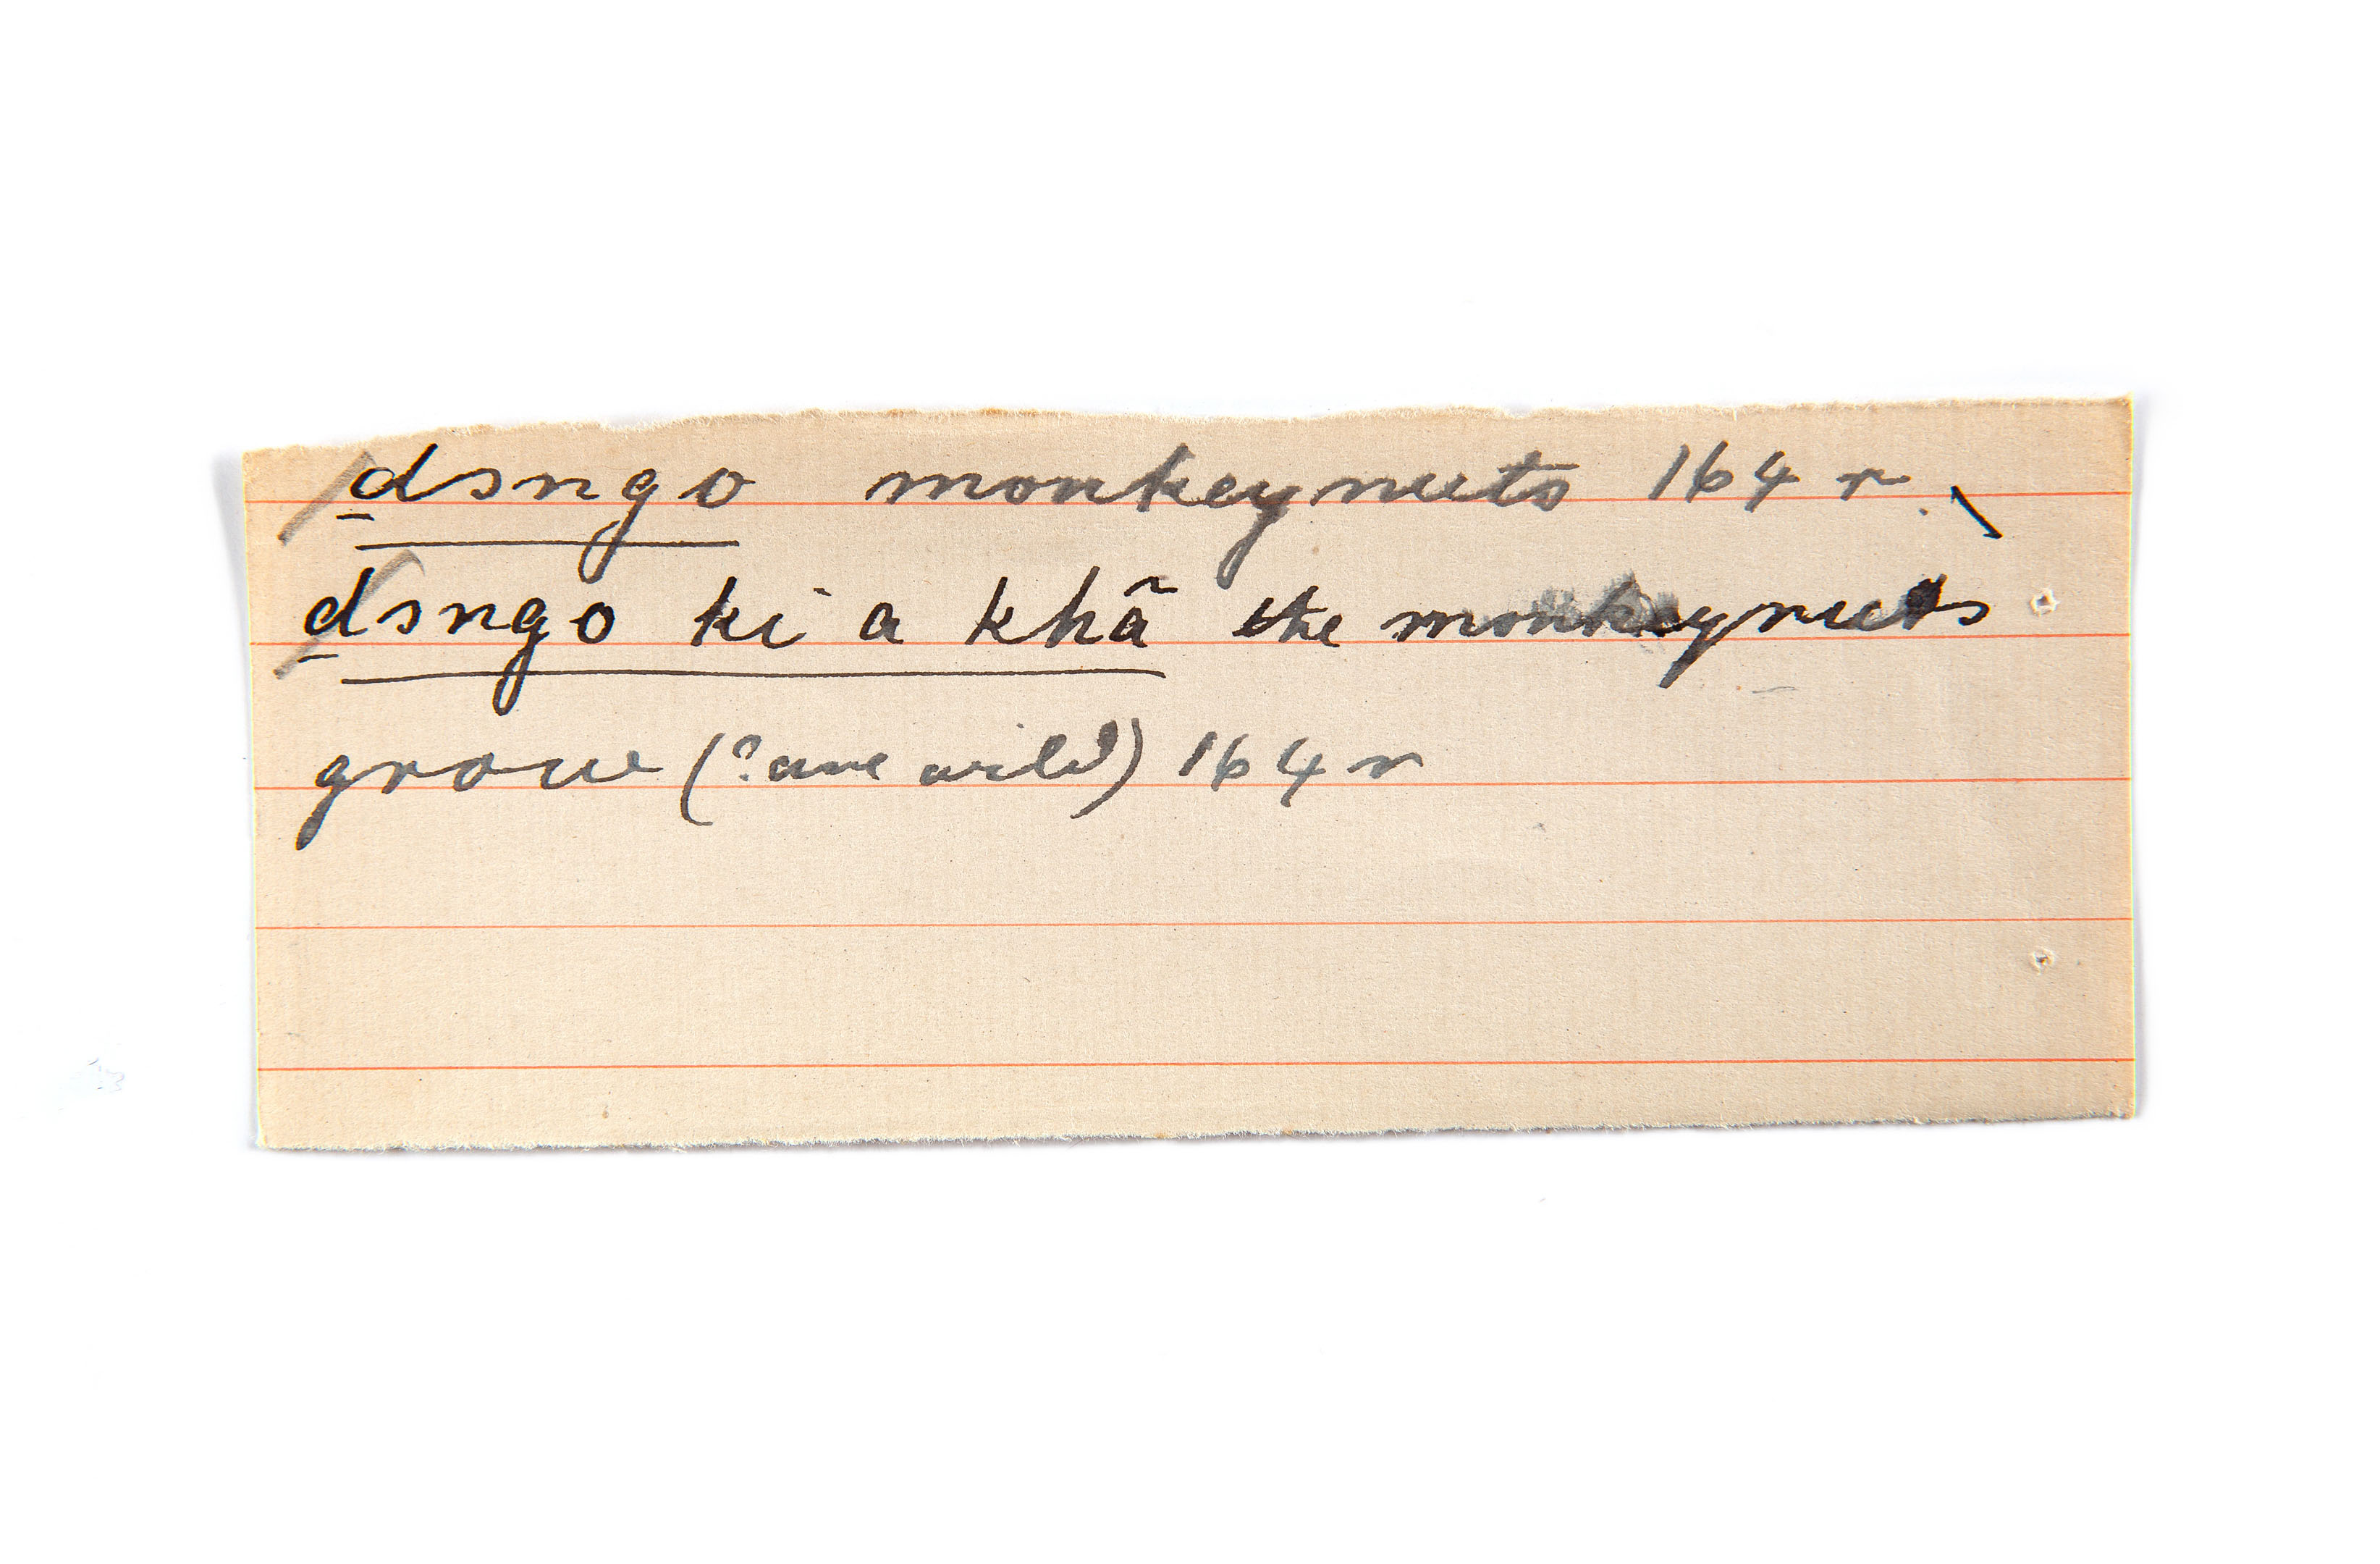 ḏsngo monkeynuts 164 r.
ḏsngo ki a khã the monkeynuts
grow (? are wild) 164 r